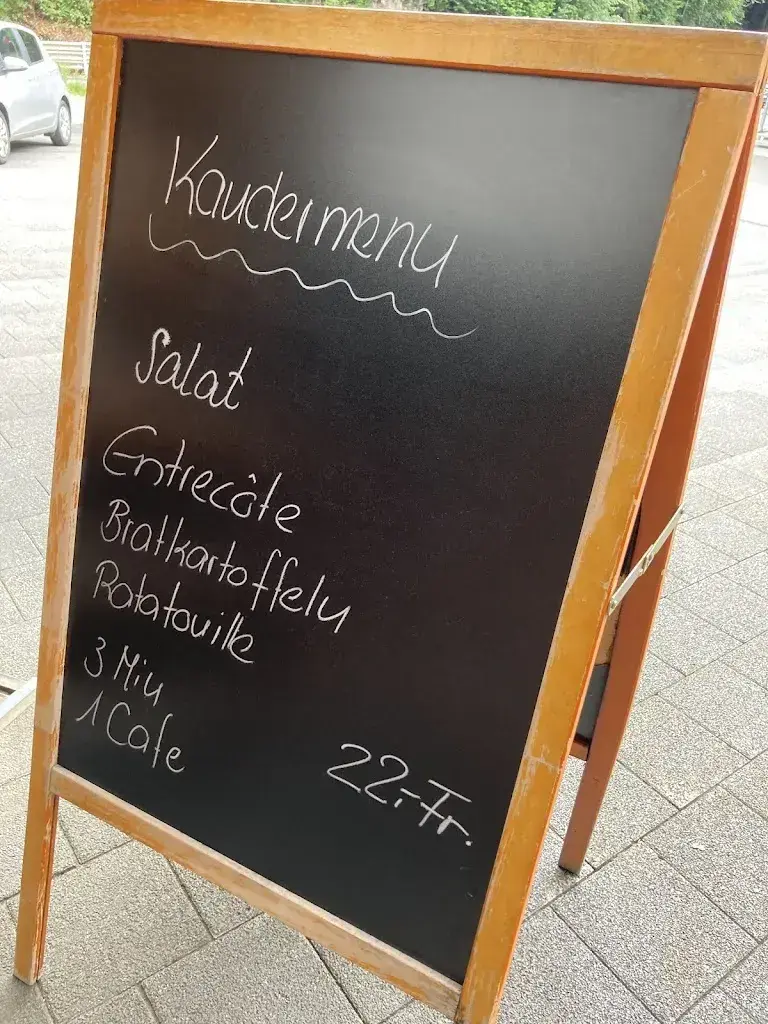 Kaudermenu
Salat
Entrecôte
Bratkartoffeln
Ratatouille
3 Min
1 Cafe
22,- Fr.